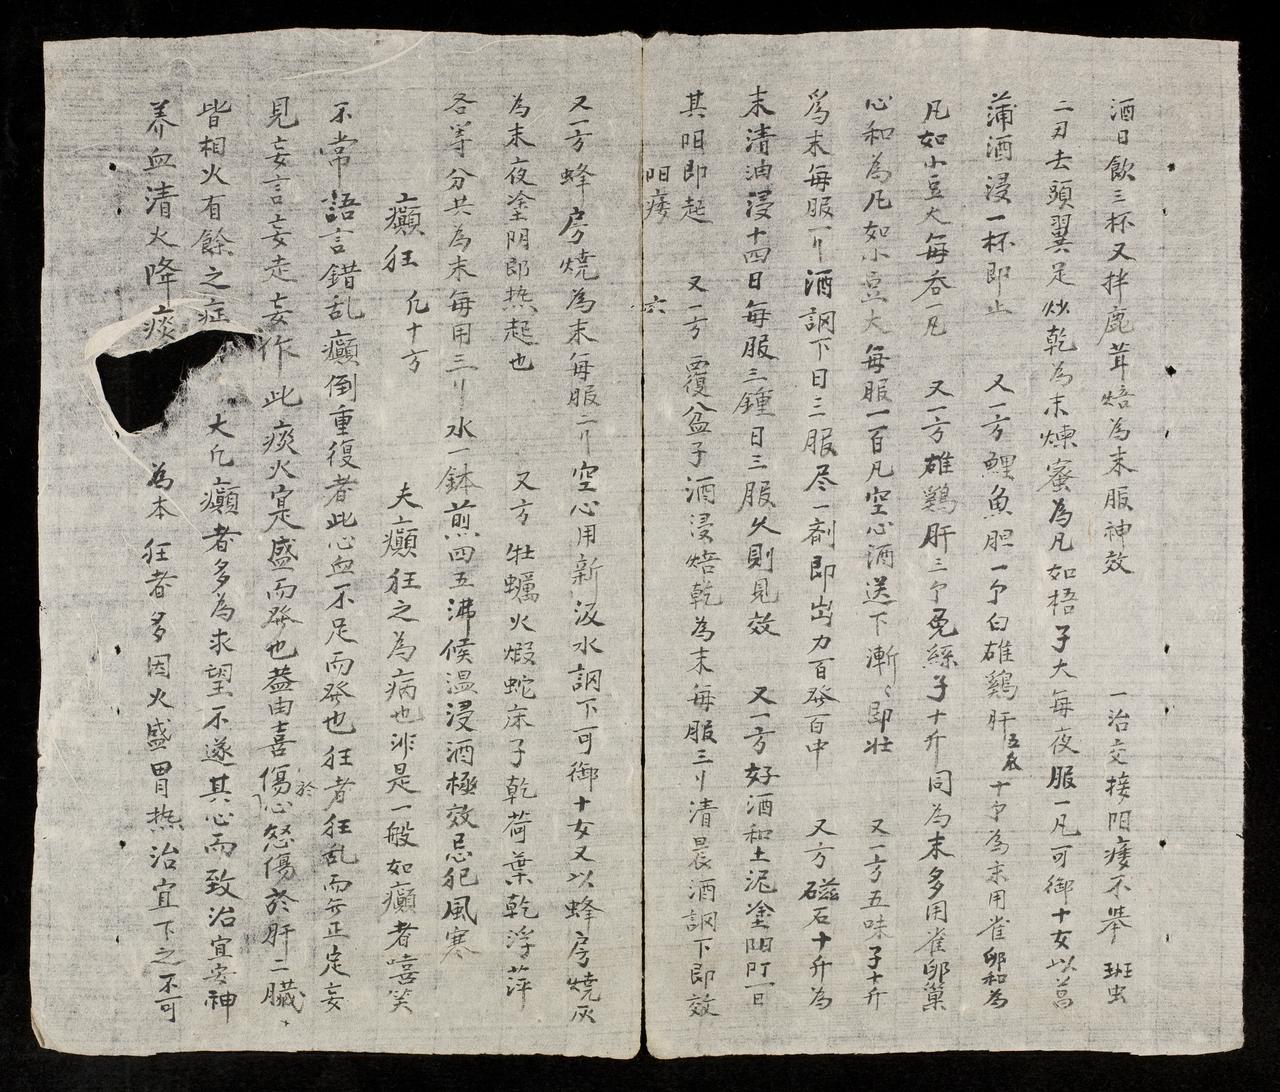 酒日飲三杯又拌鹿茸焙為末服神效　一治交接阳痿不举　斑虫
二刃去頭翼足炒乾為末煉蜜為凡如梧子大每夜服一凡可御十女以菖
蒲酒浸一杯即止　又一方鯉魚胆一个白雄鷄肝十个為末用雀卵和為
凡如小豆大每吞一凡　又一方雄鷄肝三个兔絲子十升同為末多用雀卵巢
心和為凡如小豆大每服一百凡空心酒送下漸〻即壮　又一方五味子十升
為末每服一刂酒調下日三服尽一剤即出力百發百中　又方磁石十升為
末清油浸十四日每服三鍾日三服久則見效　又一方好酒和土泥塗阳阶一日
其阳即起　又一方覆盆子酒浸焙乾為末每服三刂清晨酒調下即效
阳痿　六
又一方蜂房焼為末每服二刂空心用新汲水調下可御十女又以蜂房燒灰
為末夜塗阴即热起也　又方牡蠣火煆蛇床子乾荷葉乾浮萍
各等分共為末每用三刂水一鉢煎四五沸候温浸酒極效忌犯風寒
癲狂　凣十方　夫癲狂之為病也非是一般如癲者嘻笑
不常語言錯乱癲倒重復者此心血不足而發也狂者狂乱而无正定妄
見妄言妄走妄作此痰火寔盛而發也盖由喜傷於心怒傷於肝二臟
皆相火有餘之症　大凣癲者多為求望不遂其心而致治宜安神
养血清火降痰　為本狂者多因火盛胃热治宜下之不可